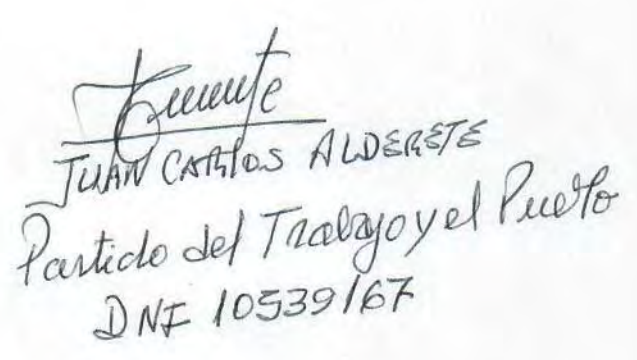 JUAN CARLOS ALDERETE
Partido del Trabajo y el Pueblo
DNI 10539167